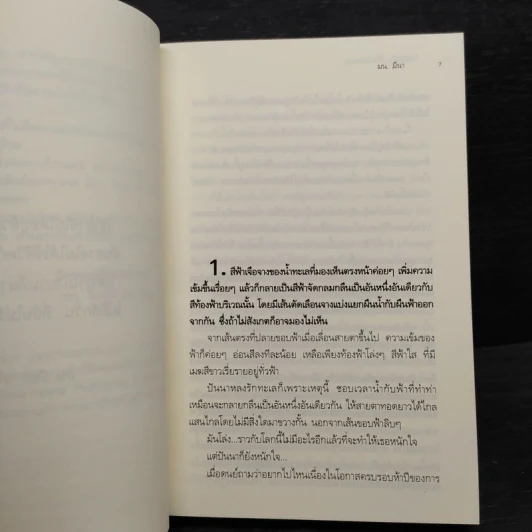 มน. มีนา
7
1. สีฟ้าเจือจางของน้ำทะเลที่มองเห็นตรงหน้าค่อยๆ เพิ่มความ
เข้มขึ้นเรื่อยๆ แล้วก็กลายเป็นสีฟ้าจัดกลมกลืนเป็นอันหนึ่งอันเดียวกับ
สีท้องฟ้าบริเวณนั้น โดยมีเส้นตัดเลือนจางแบ่งแยกผืนน้ำกับผืนฟ้าออก
จากกัน ซึ่งถ้าไม่สังเกตก็อาจมองไม่เห็น
จากเส้นตรงที่ปลายขอบฟ้าเมื่อเลื่อนสายตาขึ้นไป ความเข้มของ
ฟ้าก็ค่อยๆ อ่อนสีลงทีละน้อย เหลือเพียงท้องฟ้าโล่งๆ สีฟ้าใส ที่มี
เมฆสีขาวเรี่ยรายอยู่ทั่วฟ้า
ปันนาหลงรักทะเลก็เพราะเหตุนี้ ชอบเวลาน้ำกับฟ้าที่ทำท่า
เหมือนจะกลายกลืนเป็นอันหนึ่งอันเดียวกัน ให้สายตาทอดยาวได้ไกล
แสนไกลโดยไม่มีสิ่งใดมาขวางกั้น นอกจากเส้นขอบฟ้าลิบๆ
มันโล่ง...ราวกับโลกนี้ไม่มีอะไรอีกแล้วที่จะทำให้เธอหนักใจ
แต่ปันนาก็ยังหนักใจ...
เมื่อคนย์ถามว่าอยากไปไหนเนื่องในโอกาสครบรอบห้าปีของการ